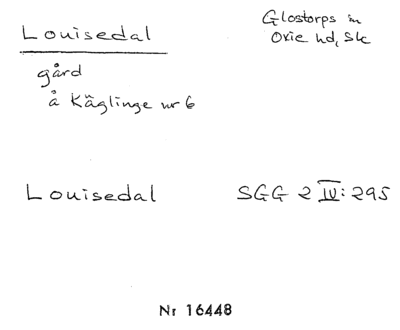 Louisedal
Glostorps sn
Oxie hd, Sk
gård
å Käglinge nr 6
Louisedal SGG 2 IV: 295
Nr 16448